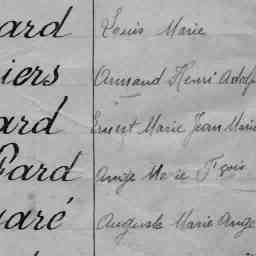 ard Louis Marie
iers Armand Henri Adolp
ard Ernest Marie Jean Marie
Gard Ange Marie Fçois
garé Auguste Marie Ange